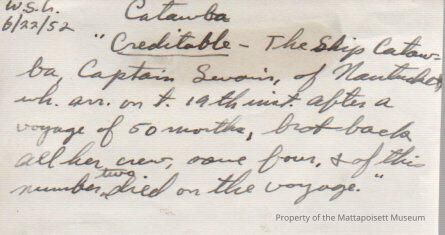 W.S.L. Catawba
6/22/52
"Creditable - The Ship Cataw-
ba, Captain Swain, of Nantucket,
wh. arr. on t. 19th inst. after a
voyage of 50 months, brot back
all her crew, save four, & of this
number, two died on the voyage."
Property of the Mattapoisett Museum